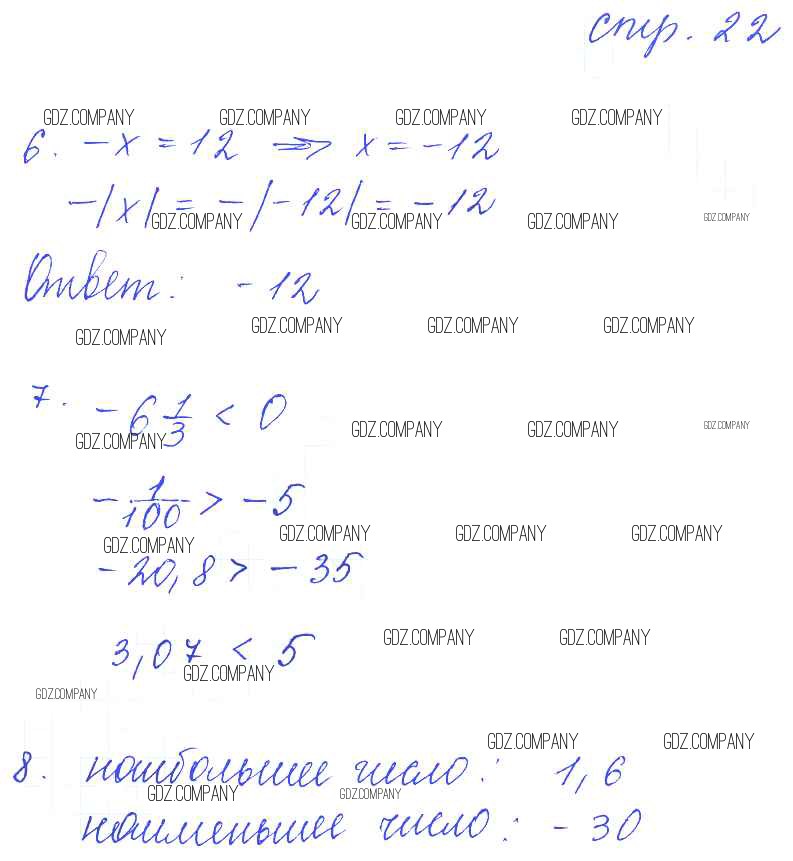 стр. 22
GDZ.COMPANY GDZ.COMPANY GDZ.COMPANY GDZ.COMPANY
6. -x = 12 => x = -12
-|x| = -|-12| = -12
GDZ.COMPANY GDZ.COMPANY GDZ.COMPANY GDZ.COMPANY
Ответ: -12
GDZ.COMPANY GDZ.COMPANY GDZ.COMPANY GDZ.COMPANY
7. -6 1/3 < 0
GDZ.COMPANY GDZ.COMPANY GDZ.COMPANY GDZ.COMPANY
-1/100 > -5
GDZ.COMPANY GDZ.COMPANY GDZ.COMPANY GDZ.COMPANY
-20,8 > -35
3,07 < 5
GDZ.COMPANY GDZ.COMPANY GDZ.COMPANY
GDZ.COMPANY
8. наибольшее число: 1,6
GDZ.COMPANY GDZ.COMPANY
GDZ.COMPANY GDZ.COMPANY
наименьшее число: -30